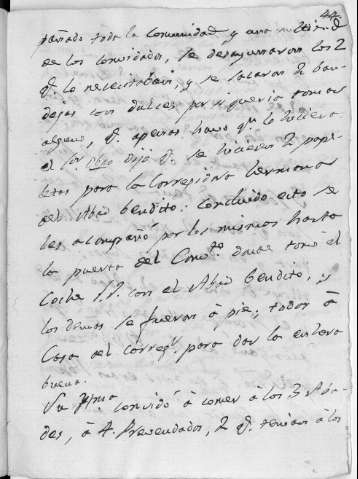 pañado toda la comunidad y una multitud
de los convidados, se desayunaron los 2
q.e lo necesitaban, y se sacaron 2 ban-
dejas con dulces por si queria tomar
alguno, q.e apenas huvo q.n lo hiciera
el s.or obpo dijo q.e se hiciesen 2 pape-
letas para la Corregidora hermana
del Abad bendito: concluido esto se
les acompañó por los mismos hasta
la puerta del Conv.to donde tomó el
Coche S.I. con el Abad bendito, y
los demas se fueron à pie, todos à
Casa del Correg.r para dar la enhora
buena.
Su Yma. convidó à comer à los 3 Aba-
des, à 4. Presendados, 2 q.e tenian à los